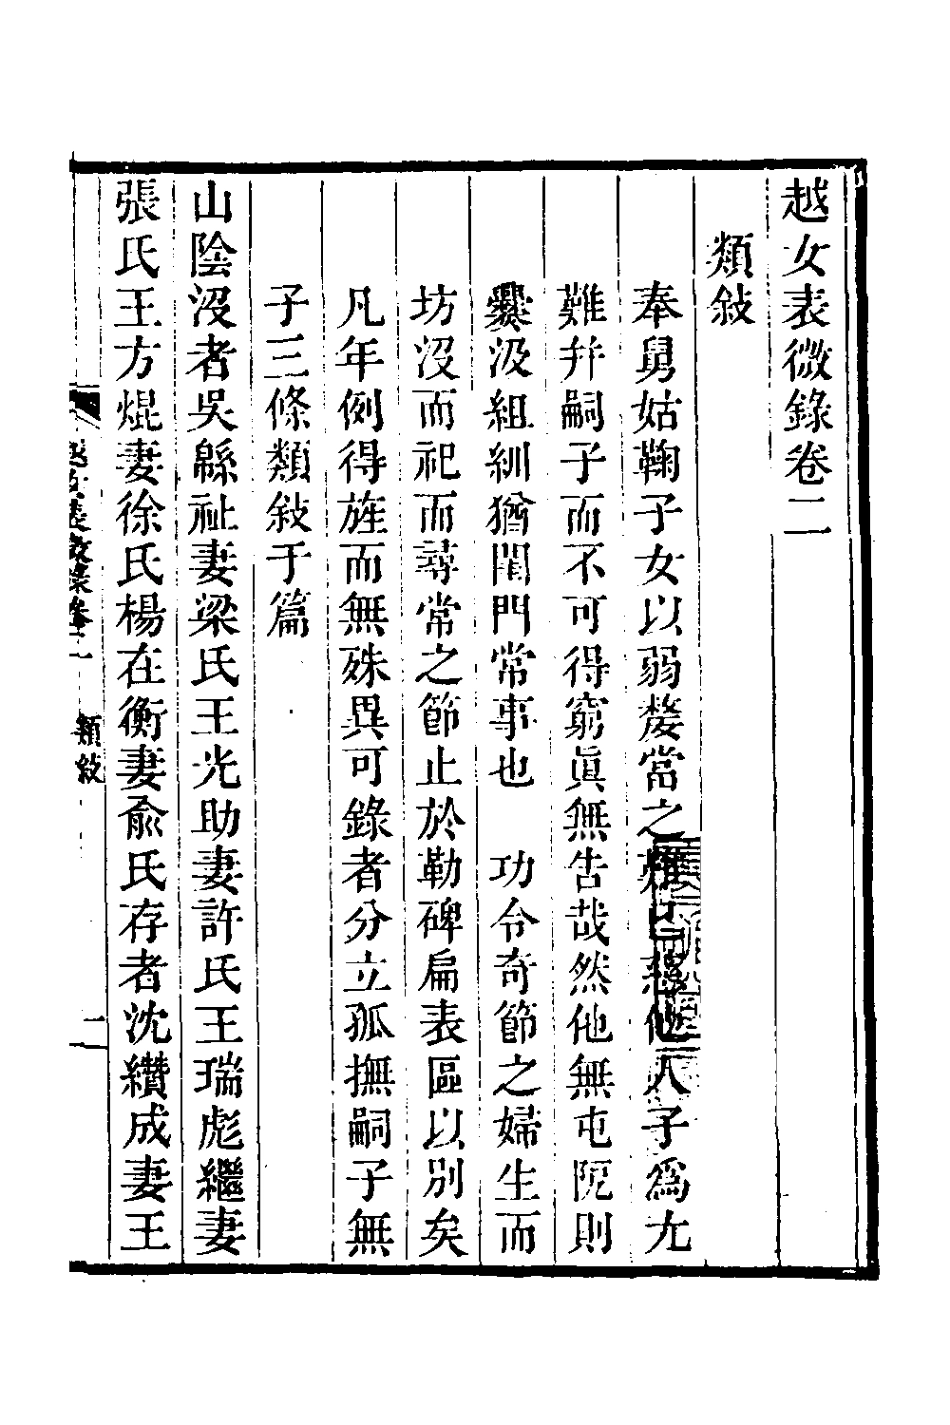 越女表微錄卷二
類敍
奉舅姑鞠子女以弱嫠當之難已慈他人子爲尤
難幷嗣子而不可得窮眞無告哉然他無屯阨則
爨汲組紃猶閨門常事也　功令奇節之婦生而
坊沒而祀而尋常之節止於勒碑扁表區以別矣
凡年例得旌而無殊異可錄者分立孤撫嗣子無
子三條類敍于篇
山陰沒者吳緜祉妻梁氏王光助妻許氏王瑞彪繼妻
張氏王方焜妻徐氏楊在衡妻兪氏存者沈纘成妻王
越女表微錄卷二
類敍
一